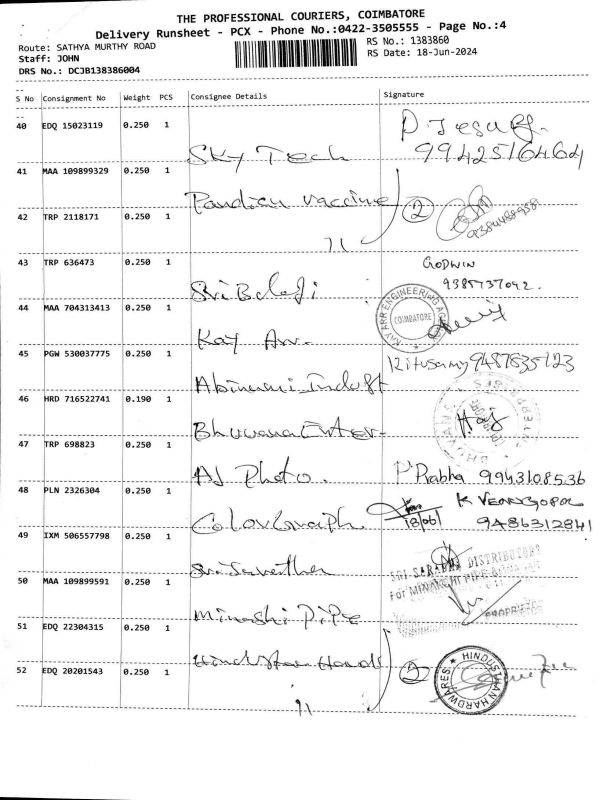 THE PROFESSIONAL COURIERS, COIMBATORE
Delivery Runsheet - PCX - Phone No.:0422-3505555 - Page No.:4
Route: SATHYA MURTHY ROAD
RS No.: 1383860
Staff: JOHN
RS Date: 18-Jun-2024
DRS No.: DCJB138386004
S No Consignment No Weight PCS Consignee Details Signature
40 EDQ 15023119 0.250 1 Sky Tech
9942516464
41 MAA 109899329 0.250 1 Pandian vaccine
42 TRP 2118171 0.250 1 11 2
43 TRP 636473 0.250 1 Sri Balaji
GODWIN
9385737092.
44 MAA 704313413 0.250 1 Kay Arr
KAY ARR ENGINEERING COIMBATORE
45 PGW 530037775 0.250 1 Abinavi Indust
9487635123
46 HRD 716522741 0.190 1 Bhuvana Enter-
47 TRP 698823 0.250 1 AJ Photo. P. Prabha 9943108536
48 PLN 2326304 0.250 1 Colour Graph
18/06/ K VENUGOPAL
9486312841
49 IXM 506557798 0.250 1
SRI SARADHA DISTRIBUTORS
50 MAA 109899591 0.250 1 Minashi Pipe
For MINAKSHI PIPE
PROPRIETOR
51 EDQ 22304315 0.250 1 Hindustan Hard
52 EDQ 20201543 0.250 1 11 2
HINDUSTHAN HARDWARES